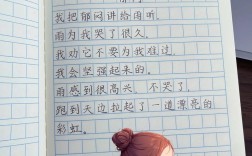 我把郁闷讲给雨听
雨为我哭了很久
我劝它不要为我难过
我会坚强起来的。
雨感到很高兴 不哭了
跑到天边拉起了一道漂亮的
彩虹。